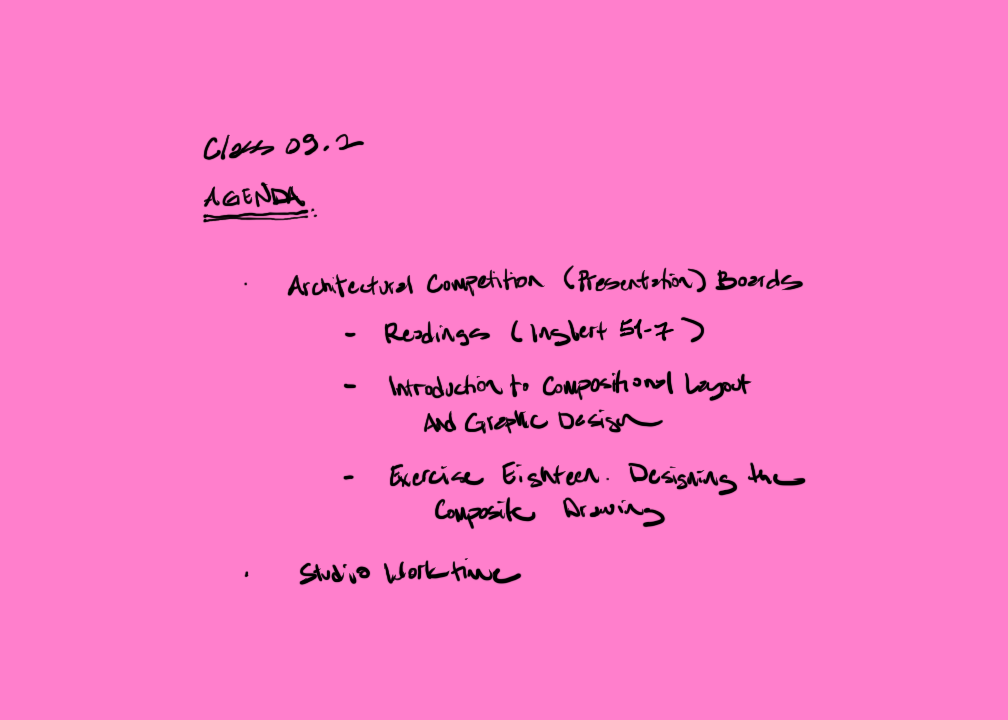 Class 09.2
AGENDA:
· Architectural Competition (Presentation) Boards
- Readings (Inglert 51-7)
- Introduction to Compositional Layout
And Graphic Design
- Exercise Eighteen. Designing the
Composite Drawing
· Studio Worktime